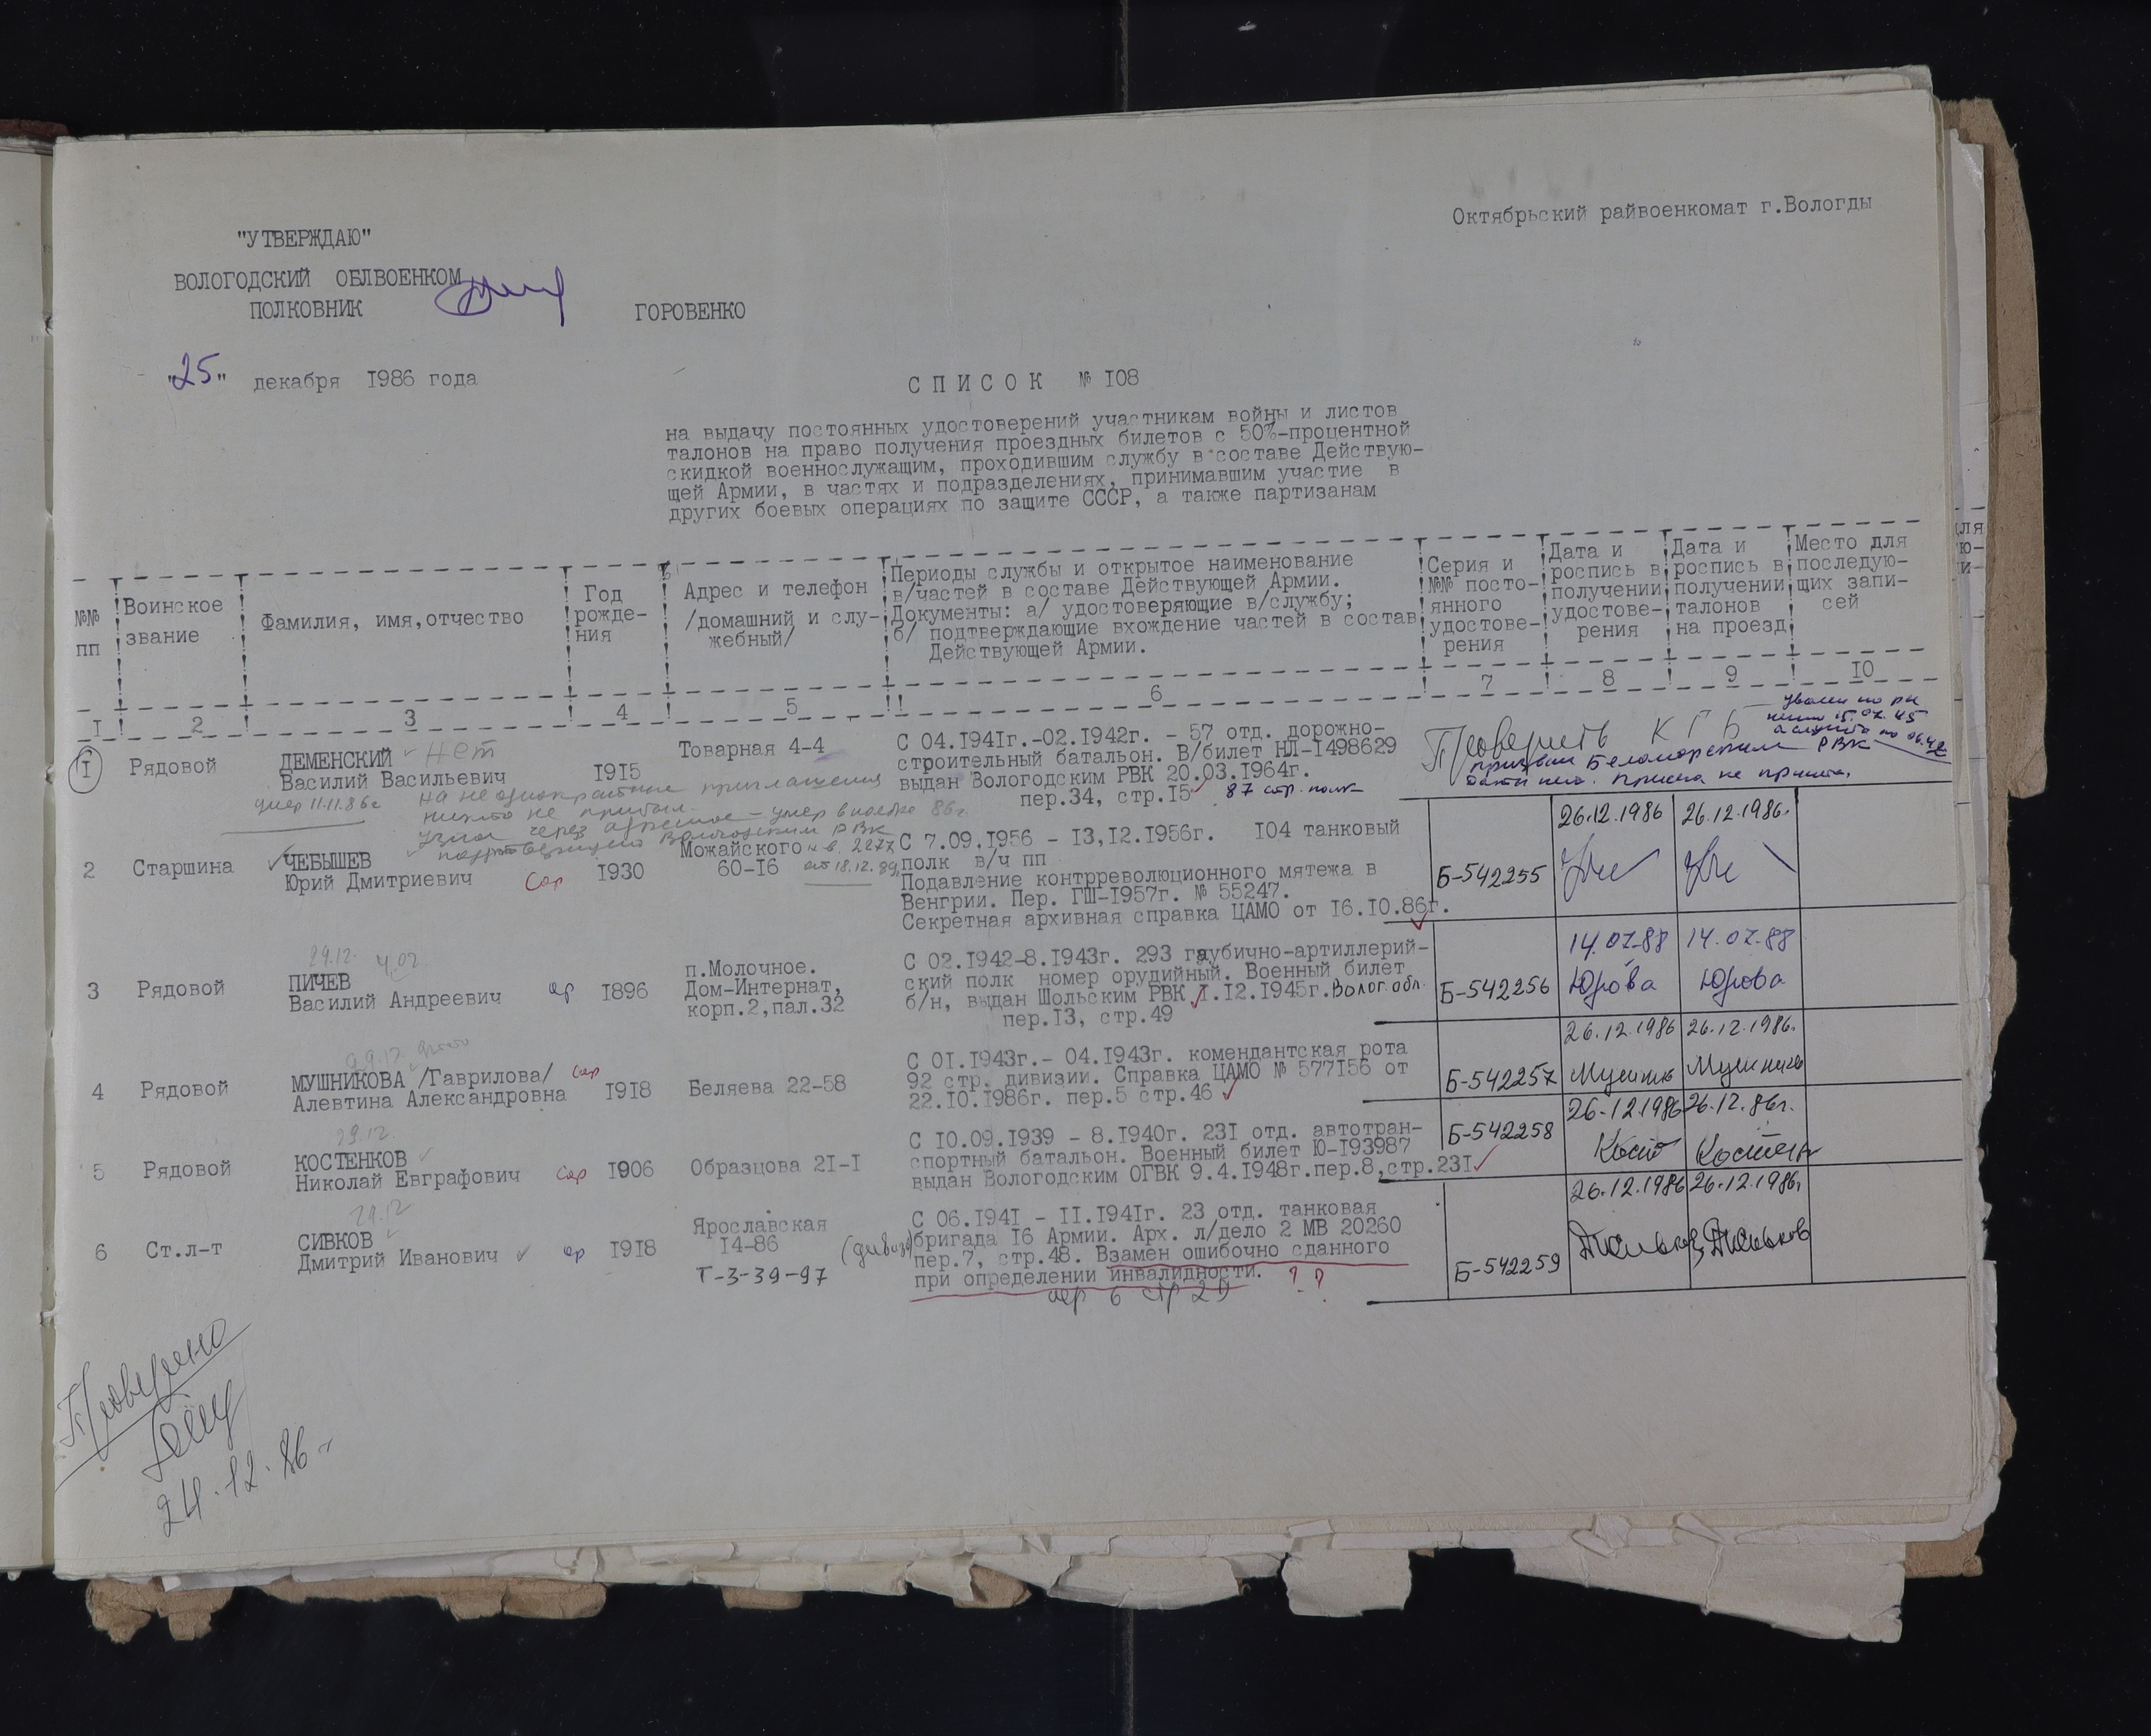 Октябрьский райвоенкомат г.Вологды
"УТВЕРЖДАЮ"
ВОЛОГОДСКИЙ ОБЛВОЕНКОМ
ПОЛКОВНИК ГОРОВЕНКО
"25" декабря 1986 года
СПИСОК № 108
на выдачу постоянных удостоверений участникам войны и листов
талонов на право получения проездных билетов с 50%-процентной
скидкой военнослужащим, проходившим службу в составе Действую-
щей Армии, в частях и подразделениях, принимавшим участие в
других боевых операциях по защите СССР, а также партизанам
№№ пп
Воинское звание
Фамилия, имя, отчество
Год рожде-
ния
Адрес и телефон
/домашний и слу-
жебный/
Периоды службы и открытое наименование
в/частей в составе Действующей Армии.
Документы: а/ удостоверяющие в/службу;
б/ подтверждающие вхождение частей в состав
Действующей Армии.
Серия и
№№ посто-
янного
удостове-
рения
Дата и
роспись в
получении
удостове-
рения
Дата и
роспись в
получении
талонов
на проезд
Место для
последую-
щих запи-
сей
1 2 3 4 5 6 7 8 9 10
1 Рядовой
ДЕМЕНСКИЙ нет
Василий Васильевич
1915
Товарная 4-4
С 04.1941г.-02.1942г. - 57 отд. дорожно-
строительный батальон. В/билет НЛ-1498629
выдан Вологодским РВК 20.03.1964г.
пер.34, стр.15 87 стр. полк
Проверить КГБ
призван Беломорским РВК
Присяга не принята.
умер 11.11.86г
на неоднократные приглашения
никто не прибыл.
узнал через адресное - умер в ноябре 86г.
Вологодским РВК
2 Старшина
ЧЕБЫШЕВ
Юрий Дмитриевич
1930
Можайского
60-16
от 18.12.89
С 7.09.1956 - 13,12.1956г. 104 танковый
полк в/ч пп
Подавление контрреволюционного мятежа в
Венгрии. Пер. ГШ-1957г. № 55247.
Секретная архивная справка ЦАМО от 16.10.86г.
Б-542255
26.12.1986
26.12.1986.
29.12. 4.02
3 Рядовой
ПИЧЕВ
Василий Андреевич
1896
п.Молочное.
Дом-Интернат,
корп.2,пал.32
С 02.1942-8.1943г. 293 гаубично-артиллерий-
ский полк номер орудийный. Военный билет
б/н, выдан Шольским РВК 1.12.1945г. Волог.обл.
пер.13, стр.49
Б-542256
14.07.88 Юрова
14.07.88 Юрова
4 Рядовой
МУШНИКОВА /Гаврилова/
Алевтина Александровна
1918
Беляева 22-58
С 01.1943г.- 04.1943г. комендантская рота
92 стр. дивизии. Справка ЦАМО № 577156 от
22.10.1986г. пер.5 стр.46
Б-542257
26.12.1986
26.12.1986.
29.12.
5 Рядовой
КОСТЕНКОВ
Николай Евграфович
1906
Образцова 21-1
С 10.09.1939 - 8.1940г. 231 отд. автотран-
спортный батальон. Военный билет Ю-193987
выдан Вологодским ОГВК 9.4.1948г.пер.8,стр.231
Б-542258
26.12.1986
26.12.86г.
29.12
6 Ст.л-т
СИВКОВ
Дмитрий Иванович
1918
Ярославская
14-86
Т-3-39-97
С 06.1941 - 11.1941г. 23 отд. танковая
бригада 16 Армии. Арх. л/дело 2 МВ 20260
пер.7, стр.48. Взамен ошибочно сданного
при определении инвалидности. ??
пер 6 стр 29
Б-542259
26.12.1986
26.12.1986.
Проверено
24.12.86г